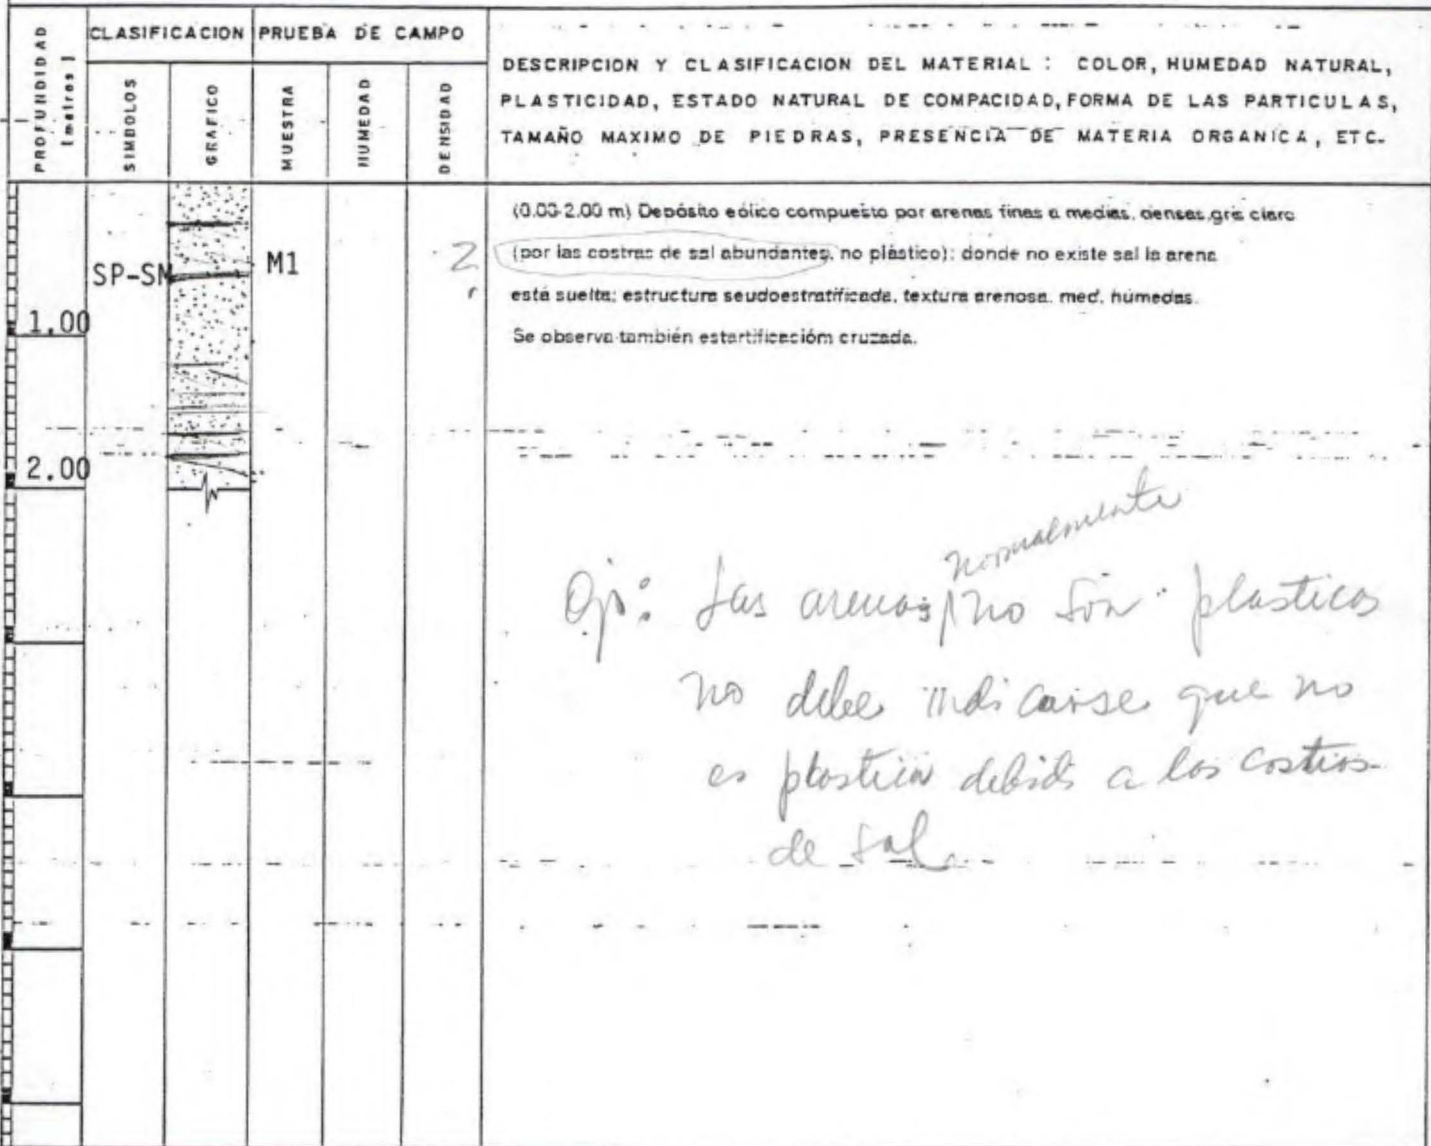 CLASIFICACION
PRUEBA DE CAMPO
PROFUNDIDAD
(metros)
SIMBOLOS
GRAFICO
MUESTRA
HUMEDAD
DENSIDAD
DESCRIPCION Y CLASIFICACION DEL MATERIAL : COLOR, HUMEDAD NATURAL,
PLASTICIDAD, ESTADO NATURAL DE COMPACIDAD, FORMA DE LAS PARTICULAS,
TAMAÑO MAXIMO DE PIEDRAS, PRESENCIA DE MATERIA ORGANICA, ETC.
(0.00-2.00 m) Depósito eólico compuesto por arenas finas a medias, densas, gris claro
(por las costras de sal abundantes, no plástico); donde no existe sal la arena
está suelta; estructura seudoestratificada, textura arenosa, med. húmedas.
Se observa también estartificacióm cruzada.
SP-SM
M1
1.00
2.00
normalmente
Ojo: Las arenas no son plasticas
no debe indicarse que no
es plastica debido a las costras
de sal